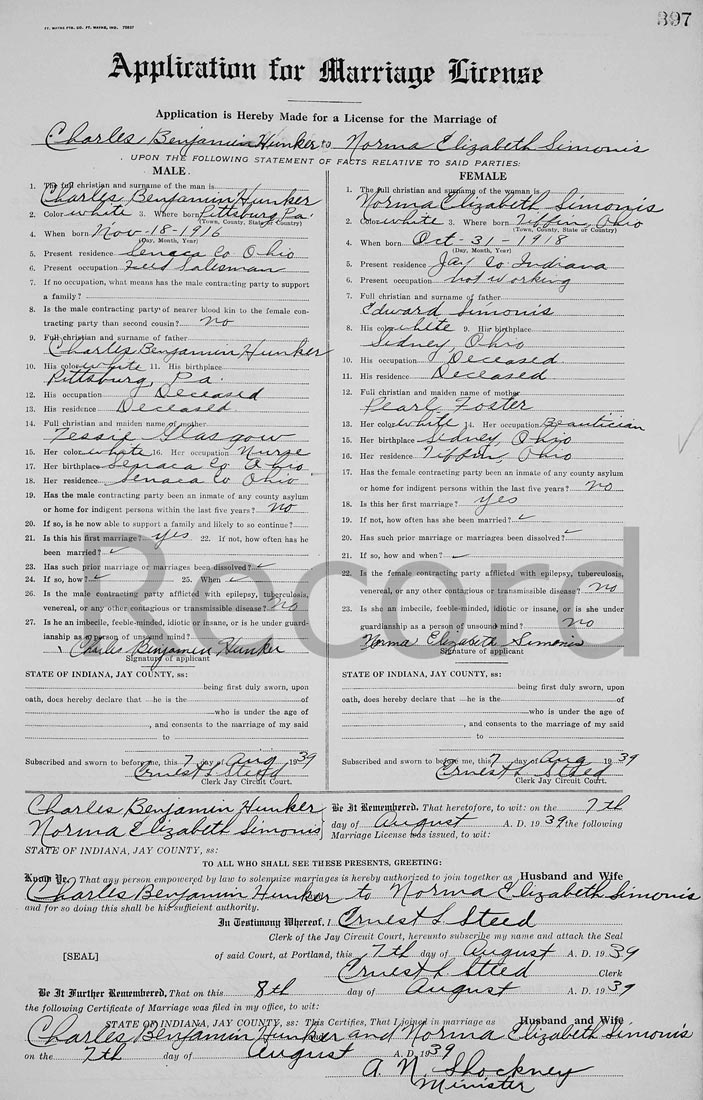 FT. WAYNE PTG. CO. FT. WAYNE, IND. 75827
397
Application for Marriage License
Application is Hereby Made for a License for the Marriage of
Charles Benjamin Hunker to Norma Elizabeth Simonis
UPON THE FOLLOWING STATEMENT OF FACTS RELATIVE TO SAID PARTIES:
MALE.
1. The full christian and surname of the man is
Charles Benjamin Hunker
2. Color white 3. Where born Pittsburg, Pa.
(Town, County, State or Country)
4. When born Nov-18-1916
(Day, Month, Year)
5. Present residence Seneca Co Ohio
6. Present occupation Feed Salesman
7. If no occupation, what means has the male contracting party to support
a family?
8. Is the male contracting party of nearer blood kin to the female con-
tracting party than second cousin? no
9. Full christian and surname of father
Charles Benjamin Hunker
10. His color white 11. His birthplace
Pittsburg, Pa.
12. His occupation Deceased
13. His residence Deceased
14. Full christian and maiden name of mother
Tessie Glasgow
15. Her color white 16. Her occupation Nurse
17. Her birthplace Seneca Co Ohio
18. Her residence Seneca Co Ohio
19. Has the male contracting party been an inmate of any county asylum
or home for indigent persons within the last five years? no
20. If so, is he now able to support a family and likely to so continue?
21. Is this his first marriage? yes 22. If not, how often has he
been married? ✓
23. Has such prior marriage or marriages been dissolved? ✓
24. If so, how? ✓ 25. When ✓
26. Is the male contracting party afflicted with epilepsy, tuberculosis,
venereal, or any other contagious or transmissible disease? no
27. Is he an imbecile, feeble-minded, idiotic or insane, or is he under guard-
ianship as a person of unsound mind? no
Charles Benjamin Hunker
Signature of applicant
STATE OF INDIANA, JAY COUNTY, ss:
being first duly sworn, upon
oath, does hereby declare that he is the of
who is under the age of
, and consents to the marriage of my said
to
Subscribed and sworn to before me, this 7 day of Aug 1939
Ernest L Steed
Clerk Jay Circuit Court.
FEMALE
1. The full christian and surname of the woman is
Norma Elizabeth Simonis
2. Color white 3. Where born Tiffin, Ohio
(Town, County, State or Country)
4. When born Oct-31-1918
(Day, Month, Year)
5. Present residence Jay Co. Indiana
6. Present occupation not working
7. Full christian and surname of father
Edward Simonis
8. His color white 9. His birthplace
Sidney, Ohio
10. His occupation Deceased
11. His residence Deceased
12. Full christian and maiden name of mother
Pearl Foster
13. Her color white 14. Her occupation Beautician
15. Her birthplace Sidney, Ohio
16. Her residence Tiffin, Ohio
17. Has the female contracting party been an inmate of any county asylum
or home for indigent persons within the last five years? no
18. Is this her first marriage? yes
19. If not, how often has she been married? ✓
20. Has such prior marriage or marriages been dissolved? ✓
21. If so, how and when? ✓
22. Is the female contracting party afflicted with epilepsy, tuberculosis,
venereal, or any other contagious or transmissible disease? no
23. Is she an imbecile, feeble-minded, idiotic or insane, or is she under
guardianship as a person of unsound mind? no
Norma Elizabeth Simonis
Signature of applicant
STATE OF INDIANA, JAY COUNTY, ss:
being first duly sworn, upon
oath, does hereby declare that he is the of
who is under the age of
, and consents to the marriage of my said
to
Subscribed and sworn to before me, this 7 day of Aug 1939
Ernest L Steed
Clerk Jay Circuit Court.
Record
Charles Benjamin Hunker
Norma Elizabeth Simonis
Be It Remembered, That heretofore, to wit: on the 7th
day of August A. D. 1939 the following
Marriage License was issued, to wit:
STATE OF INDIANA, JAY COUNTY, ss:
TO ALL WHO SHALL SEE THESE PRESENTS, GREETING:
Know Ye, That any person empowered by law to solemnize marriages is hereby authorized to join together as Husband and Wife
Charles Benjamin Hunker to Norma Elizabeth Simonis
and for so doing this shall be his sufficient authority.
In Testimony Whereof, I Ernest L. Steed
Clerk of the Jay Circuit Court, hereunto subscribe my name and attach the Seal
[SEAL] of said Court, at Portland, this 7th day of August A. D. 1939
Ernest L Steed Clerk
Be It Further Remembered, That on this 8th day of August A. D. 1939
the following Certificate of Marriage was filed in my office, to wit:
STATE OF INDIANA, JAY COUNTY, ss: This Certifies, That I joined in marriage as Husband and Wife
Charles Benjamin Hunker and Norma Elizabeth Simonis
on the 7th day of August A. D. 1939
A. N. Shockney
Minister